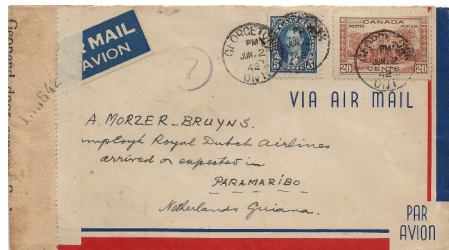 AIR MAIL
PAR AVION
GEORGETOWN
PM
JUN 2
42
ONT.
5
CANADA
POSTES POSTAGE
20 CENTS 20
GEORGETOWN
PM
JUN 2
42
ONT.
VIA AIR MAIL
A. MORZER-BRUYNS.
employé Royal Dutch Airlines
arrived or expected in
PARAMARIBO
Netherlands Guiana.
PAR
AVION